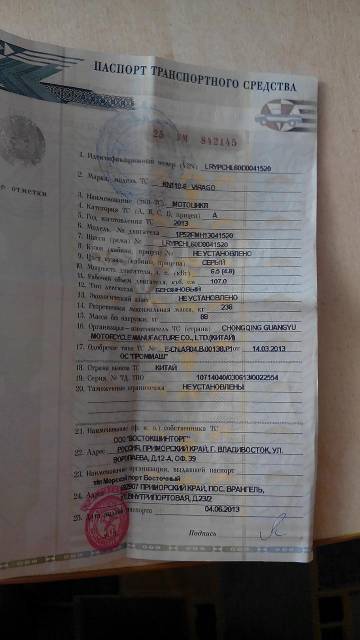 ПАСПОРТ ТРАНСПОРТНОГО СРЕДСТВА
25 УМ 842145
отметки
1. Идентификационный номер (VIN) LRYPCHL60D0041520
2. Марка, модель ТС KN110-6 VIRAGO
3. Наименование (тип ТС) МОТОЦИКЛ
4. Категория ТС (А, В, С, D, прицеп) А
5. Год изготовления ТС 2013
6. Модель, № двигателя 1P52FMH13041520
7. Шасси (рама) № LRYPCHL60D0041520
8. Кузов (кабина, прицеп) № НЕ УСТАНОВЛЕНО
9. Цвет кузова (кабины, прицепа) СЕРЫЙ
10. Мощность двигателя, л. с. (кВт) 6.5 (4.8)
11. Рабочий объем двигателя, куб. см 107.0
12. Тип двигателя БЕНЗИНОВЫЙ
13. Экологический класс НЕ УСТАНОВЛЕНО
14. Разрешенная максимальная масса, кг 236
15. Масса без нагрузки, кг 86
16. Организация—изготовитель ТС (страна) CHONGQING GUANGYU
MOTORCYCLE MANUFACTURE CO., LTD (КИТАЙ)
17. Одобрение типа ТС № E-CN.AЯ04.B.00138.P1 от 14.03.2013
ОС "ПРОММАШ"
18. Страна вывоза ТС КИТАЙ
19. Серия, № ТД, ТПО 10714040/030613/0022554
20. Таможенные ограничения НЕ УСТАНОВЛЕНЫ
21. Наименование (ф. и. о.) собственника ТС
ООО "ВОСТОКШИНТОРГ"
22. Адрес РОССИЯ, ПРИМОРСКИЙ КРАЙ, Г. ВЛАДИВОСТОК, УЛ.
ВОРОПАЕВА, Д.12-А, ОФ. 39
23. Наименование организации, выдавшей паспорт
т/п Морской порт Восточный
24. Адрес 692907 ПРИМОРСКИЙ КРАЙ, ПОС. ВРАНГЕЛЬ,
ВНУТРИПОРТОВАЯ, Д.23/2
25. Дата выдачи паспорта 04.06.2013
Подпись